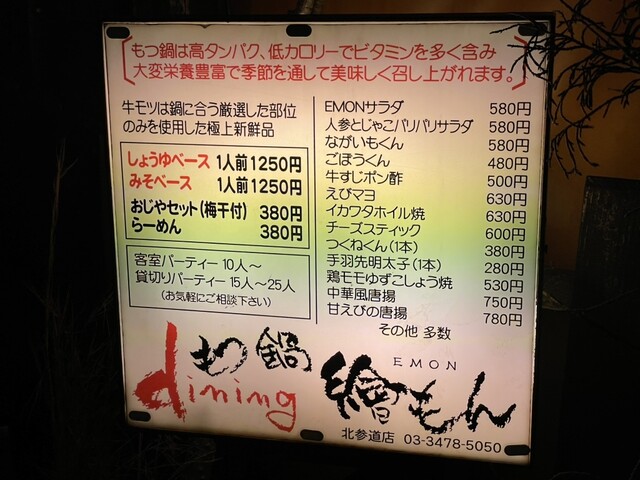 もつ鍋は高タンパク、低カロリーでビタミンを多く含み
大変栄養豊富で季節を通して美味しく召し上がれます。
牛モツは鍋に合う厳選した部位
のみを使用した極上新鮮品
しょうゆベース 1人前1250円
みそベース 1人前1250円
おじやセット(梅干付) 380円
らーめん 380円
客室パーティー 10人～
貸切りパーティー 15人～25人
(お気軽にご相談下さい)
EMONサラダ 580円
人参とじゃこパリパリサラダ 580円
ながいもくん 580円
ごぼうくん 480円
牛すじポン酢 500円
えびマヨ 630円
イカワタホイル焼 630円
チーズスティック 600円
つくねくん(1本) 380円
手羽先明太子(1本) 280円
鶏モモゆずこしょう焼 530円
中華風唐揚 750円
甘えびの唐揚 780円
その他 多数
もつ鍋
dining
EMON
繪もん
北参道店 03-3478-5050